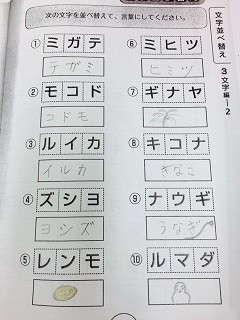 次の文字を並べ替えて、言葉にしてください。
文字並べ替え 3文字編ー2
① ミガテ
テガミ
② モコド
コドモ
③ ルイカ
イルカ
④ ズシヨ
ヨシズ
⑤ レンモ
⑥ ミヒツ
ヒミツ
⑦ ギナヤ
⑧ キコナ
きなこ
⑨ ナウギ
うなぎ
⑩ ルマダ